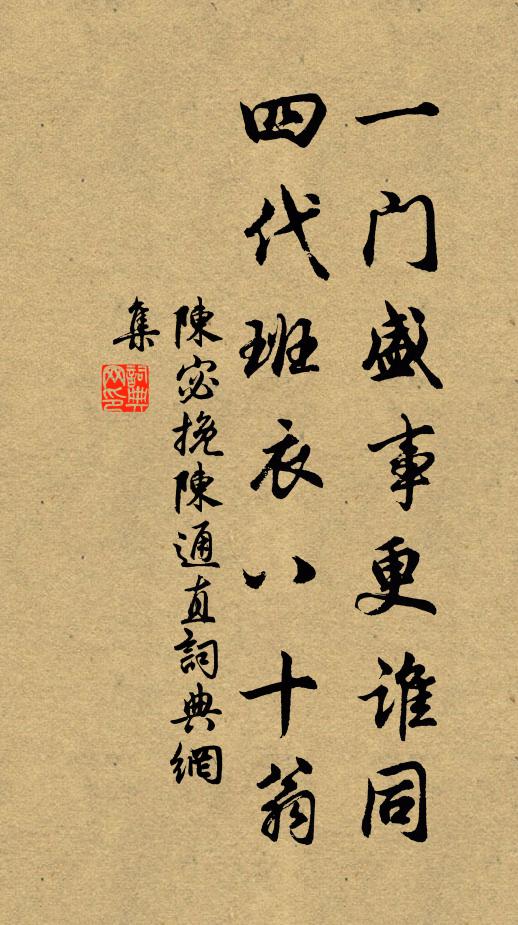 一门盛事更谁同
四代班衣八十翁
陳宓挽陳通直詞典網
集
詞典网印